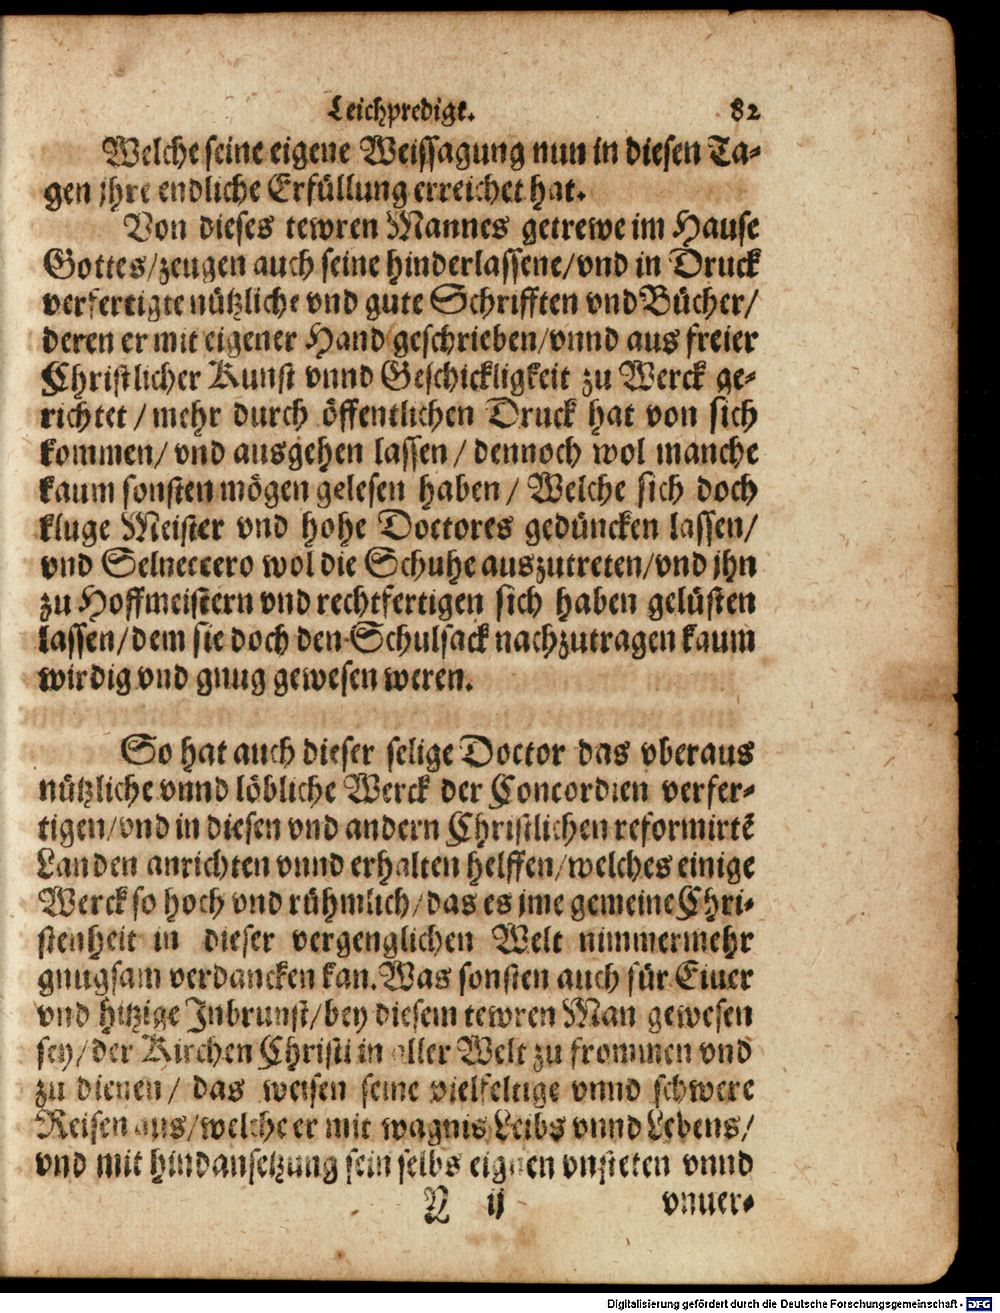 Leichpredigt. 82
Welche seine eigene Weissagung nun in diesen Ta-
gen jhre endliche Erfüllung erreichet hat.
Von dieses tewren Mannes getrewe im Hause
Gottes/zeugen auch seine hinderlassene/vnd in Druck
verfertigte nützliche vnd gute Schrifften vnd Bücher/
deren er mit eigener Hand geschrieben/vnnd aus freier
Christlicher Kunst vnnd Geschickligkeit zu Werck ge-
richtet / mehr durch öffentlichen Druck hat von sich
kommen/ vnd ausgehen lassen / dennoch wol manche
kaum sonsten mögen gelesen haben / Welche sich doch
kluge Meister vnd hohe Doctores gedüncken lassen/
vnd Selneccero wol die Schuhe auszutreten/vnd jhn
zu Hoffmeistern vnd rechtfertigen sich haben gelüsten
lassen/dem sie doch den Schulsack nachzutragen kaum
wirdig vnd gnug gewesen weren.
So hat auch dieser selige Doctor das vberaus
nützliche vnnd löbliche Werck der Concordien verfer-
tigen/vnd in diesen vnd andern Christlichen reformirtē
Landen anrichten vnnd erhalten helffen/welches einige
Werck so hoch vnd rühmlich/das es jme gemeine Chri-
stenheit in dieser vergenglichen Welt nimmermehr
gnugsam verdancken kan. Was sonsten auch für Eiuer
vnd hitzige Jnbrunst/bey diesem tewren Man gewesen
sey/der Kirchen Christi in aller Welt zu frommen vnd
zu dienen/ das weisen seine vielfeltige vnnd schwere
Reisen aus/welche er mit wagnis Leibs vnnd Lebens/
vnd mit hindansetzung sein selbs eignen vnsteten vnnd
N ij vnuer-
Digitalisierung gefördert durch die Deutsche Forschungsgemeinschaft - DFG